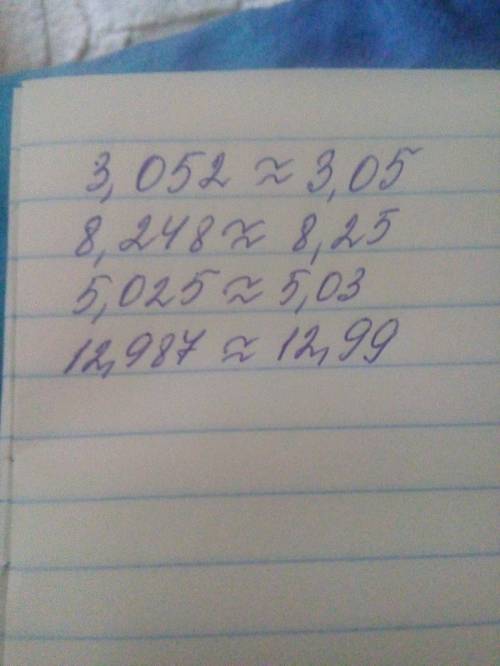 3,052 ≈ 3,05
8,248 ≈ 8,25
5,025 ≈ 5,03
12,987 ≈ 12,99